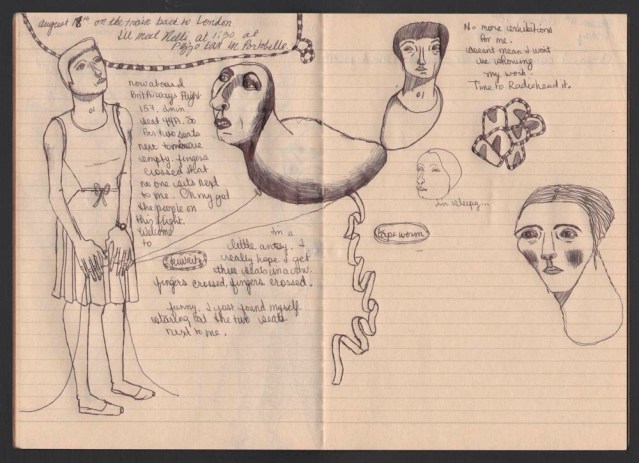 august 18th on the train back to London
Ill meet Nelli, at 1:30 at
Pizza bar in Portobello.
now aboard
British Airways flight
157. 6 min
seat
For two seats
next to me are
empty. fingers
crossed that
no one sits next
to me. Oh my god
the people on
this flight.
Welcome
to
kuwait
Im a
little antsy. I
really hope I get
three seats in a row.
fingers crossed, fingers crossed.
funny. I just found myself
staring at the two seats
next to me.
No more exhibitions
for me.
doesnt mean I wont
be showing
my work.
Time to Radiohead it.
Im sleepy...
tape worm